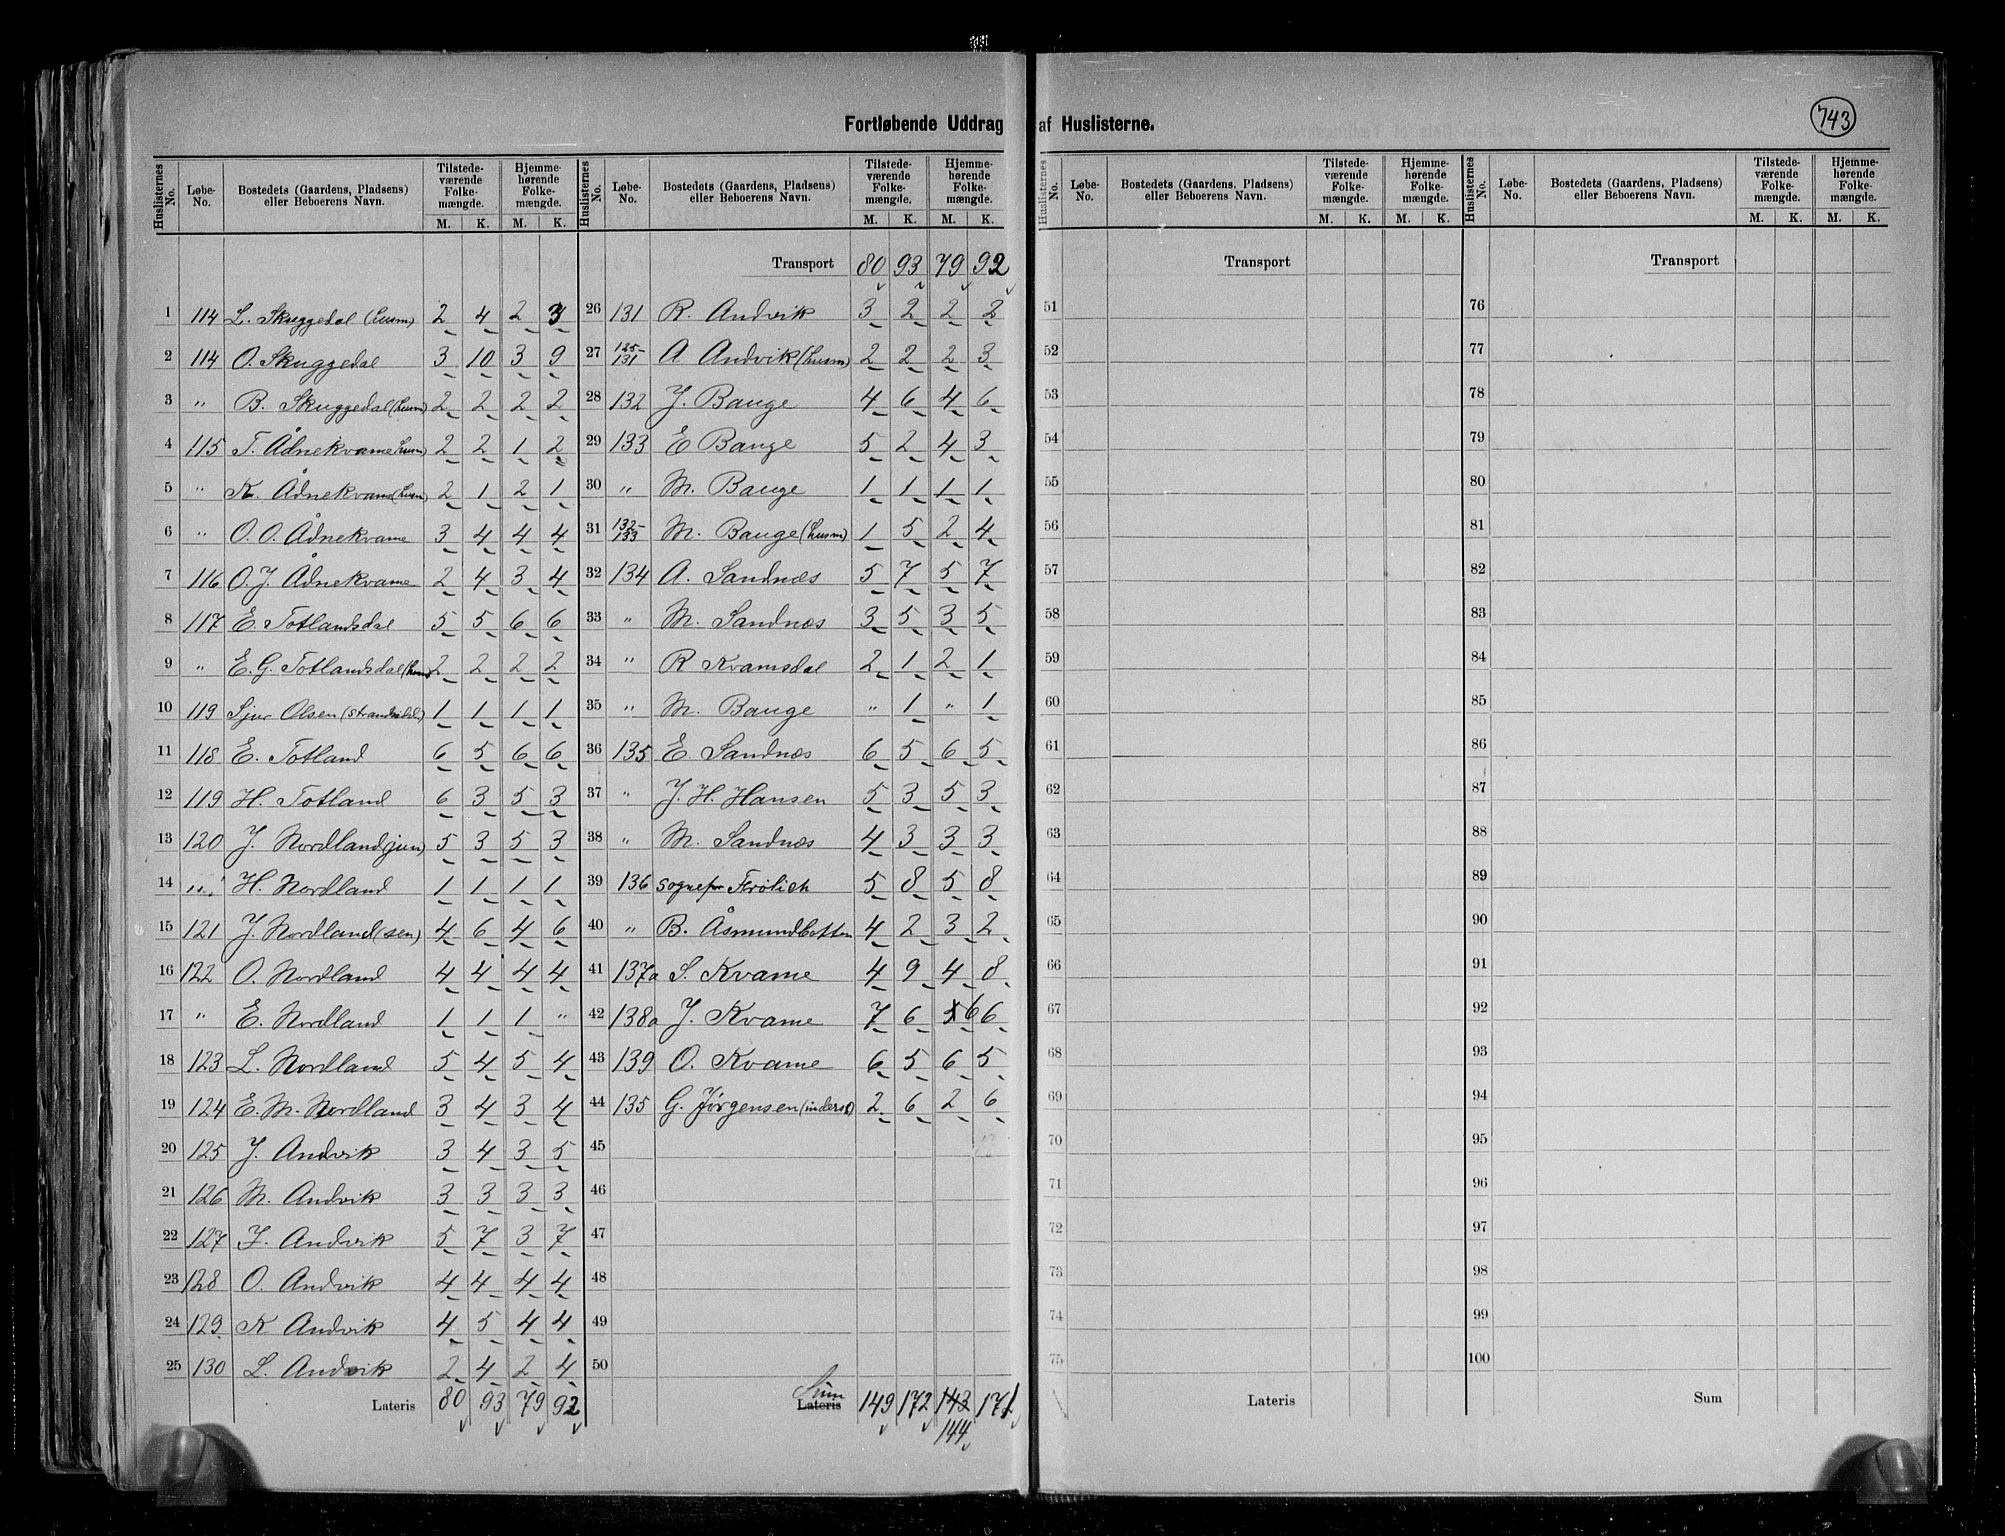 743
Fortløbende Uddrag af Huslisterne.
Huslisternes No. Løbe-No. Bostedets (Gaardens, Pladsens) eller Beboerens Navn. Tilstedeværende Folkemængde. M. K. Hjemmehørende Folkemængde. M. K.
1 114 L. Skuggedal (husm) 2 4 2 3
2 114 O. Skuggedal 3 10 3 9
3 " B. Skuggedal (husm) 2 2 2 2
4 115 T. Ådnekvame husm) 2 2 1 2
5 " K. Ådnekvam (husm) 2 1 2 1
6 " O. O. Ådnekvame 3 4 4 4
7 116 O. J. Ådnekvame 2 4 3 4
8 117 E. Totlandsdal 5 5 6 6
9 " E. G. Totlandsdal (husm) 2 2 2 2
10 119 Sjur Olsen 1 1 1 1
11 118 E. Totland 6 5 6 6
12 119 H. Totland 6 3 5 3
13 120 J. Nordland (jun) 5 3 5 3
14 " H. Nordland 1 1 1 1
15 121 J. Nordland (sen) 4 6 4 6
16 122 O. Nordland 4 4 4 4
17 " E. Nordland 1 1 1 "
18 123 L. Nordland 5 4 5 4
19 124 E. M. Nordland 3 4 3 4
20 125 J. Andvik 3 4 3 5
21 126 M. Andvik 3 3 3 3
22 127 J. Andvik 5 7 3 7
23 128 O. Andvik 4 4 4 4
24 129 K Andvik 4 5 4 4
25 130 L. Andvik 2 4 2 4
Lateris 80 93 79 92
Huslisternes No. Løbe-No. Bostedets (Gaardens, Pladsens) eller Beboerens Navn. Tilstedeværende Folkemængde. M. K. Hjemmehørende Folkemængde. M. K.
Transport 80 93 79 92
26 131 R. Andvik 3 2 2 2
27 125-131 A Andvik (husm) 2 2 2 3
28 132 J. Bauge 4 6 4 6
29 133 E Bauge 5 2 4 3
30 " M. Bauge 1 1 1 1
31 132-133 M. Bauge (husm) 1 5 2 4
32 134 A. Sandnæs 5 7 5 7
33 " M. Sandnæs 3 5 3 5
34 " R Kvamsdal 2 1 2 1
35 " M. Bauge " 1 " 1
36 135 E. Sandnæs 6 5 6 5
37 " J. H. Hansen 5 3 5 3
38 " M. Sandnæs 4 3 3 3
39 136 Sognepr Frölich 5 8 5 8
40 " B. Åsmundbotten 4 2 3 2
41 137a S. Kvame 4 9 4 8
42 138a J. Kvame 7 6 5 6 6
43 139 O. Kvame 6 5 6 5
44 135 G. Jørgensen (inderst) 2 6 2 6
45
46
47
48
49
50
Sum
Lateris 149 172 143 171
144
Huslisternes No. Løbe-No. Bostedets (Gaardens, Pladsens) eller Beboerens Navn. Tilstedeværende Folkemængde. M. K. Hjemmehørende Folkemængde. M. K.
Transport
51
52
53
54
55
56
57
58
59
60
61
62
63
64
65
66
67
68
69
70
71
72
73
74
75
Lateris
Huslisternes No. Løbe-No. Bostedets (Gaardens, Pladsens) eller Beboerens Navn. Tilstedeværende Folkemængde. M. K. Hjemmehørende Folkemængde. M. K.
Transport
76
77
78
79
80
81
82
83
84
85
86
87
88
89
90
91
92
93
94
95
96
97
98
99
100
Sum